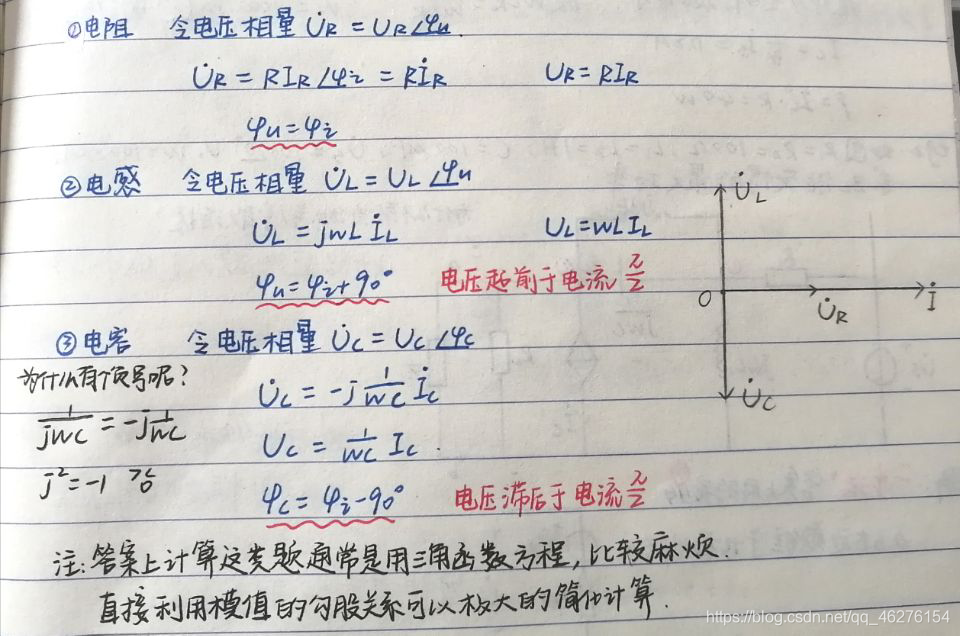 ①电阻 令电压相量 U̇R = UR∠φu.
U̇R = RIR∠φi = RİR UR = RIR
φu = φi
②电感 令电压相量 U̇L = UL∠φu
U̇L = jwL İL UL = wL IL
φu = φi+90° 电压超前于电流 π/2
③电容 令电压相量 U̇C = UC∠φC
为什么有个负号呢?
U̇C = -j 1/wC İC
1/jwC = -j 1/wC
UC = 1/wC IC.
j²=-1
φC = φi-90° 电压滞后于电流 π/2
U̇L
O U̇R İ
U̇C
注:答案上计算这类题通常是用三角函数方程,比较麻烦.
直接利用模值的勾股关系可以极大的简化计算.
https://blog.csdn.net/qq_46276154